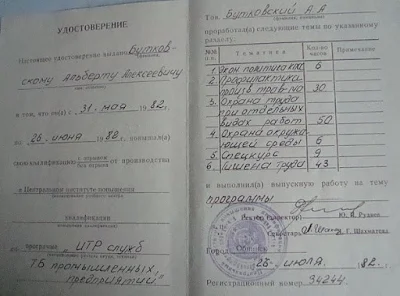 УДОСТОВЕРЕНИЕ
Настоящее удостоверение выдано Бутков-
скому Альберту Алексеевичу
в том, что он(а) с „31" мая 1982 г.
по „26" июня 1982 г. повысил(а)
свою квалификацию с отрывом от производства
без отрыва
в Центральном институте повышения
квалификации
по программе „ИТР служб
ТБ промышленных
предприятий"
Тов. Бутковский А.А
проработал(а) следующие темы по указанному
разделу:
№№ п.п. Тематика Кол-во часов Примечание
1. Экон. политика КПСС 6
2. Профилактика
произв. трав-ма 30
3. Охрана труда
при отдельных
видах работ 50
4. Охрана окружа-
ющей среды 6
5. Спецкурс 9
6. Гигиена труда 43
и выполнил(а) выпускную работу на тему
программы
Ректор (директор) Ю. Н. Рудаев
Секретарь Г. Шахматова
Город
26 июня 1982 г.
Регистрационный номер 34244.